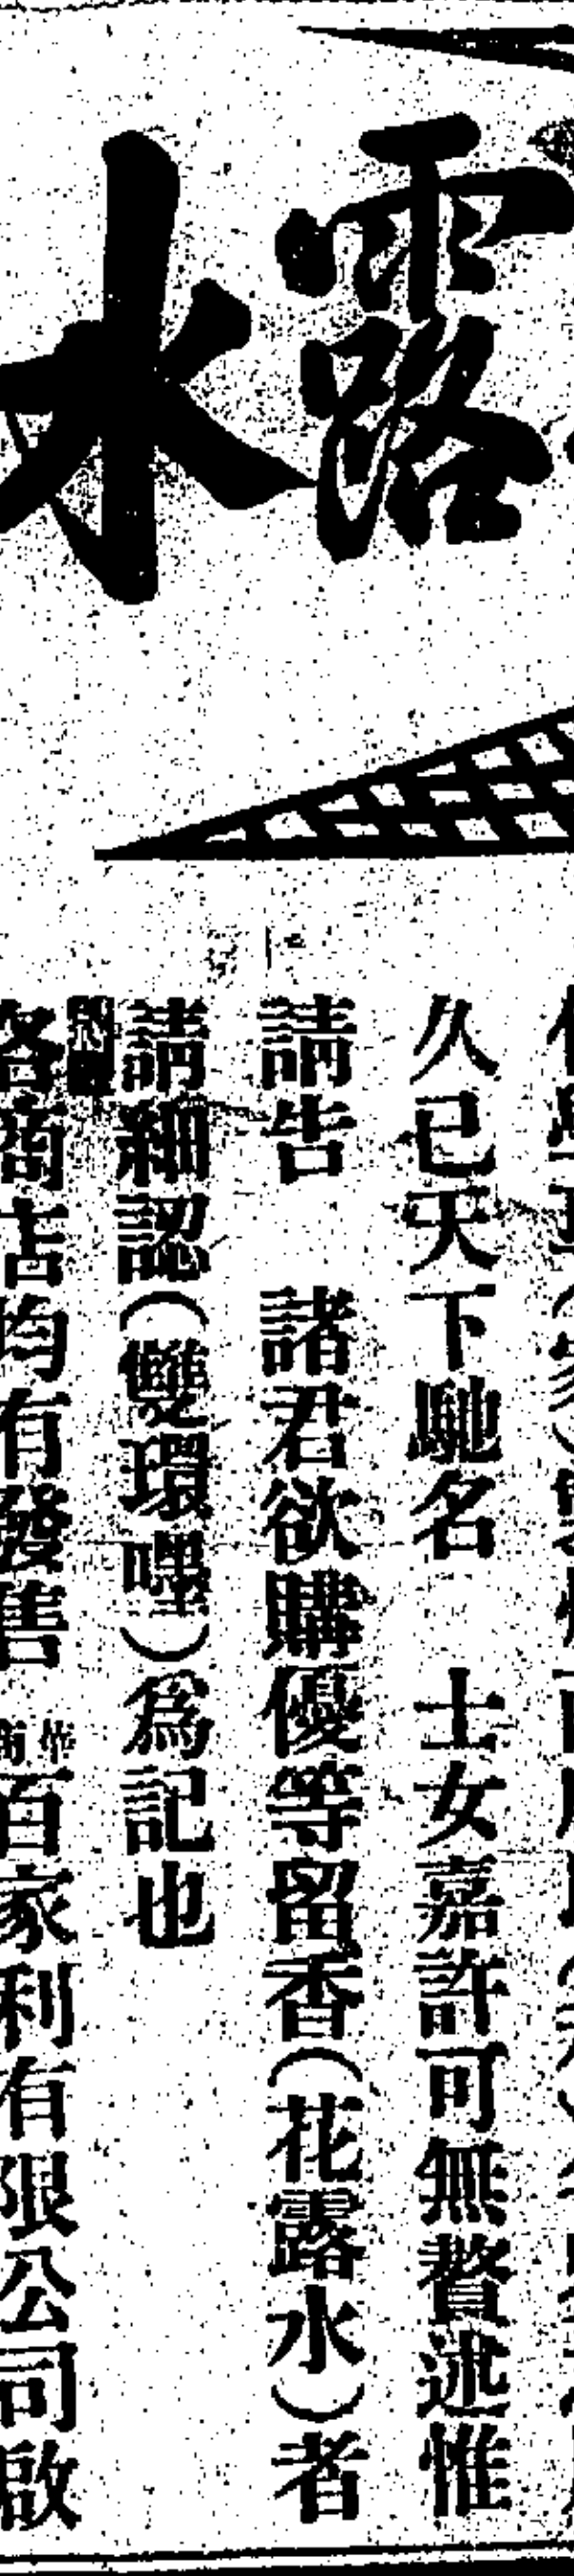 露水
久已天下馳名　士女嘉許可無贅述惟
請告　諸君欲購優等留香(花露水)者
請細認(雙環嘜)為記也
各商店均有發售　百家利有限公司啟